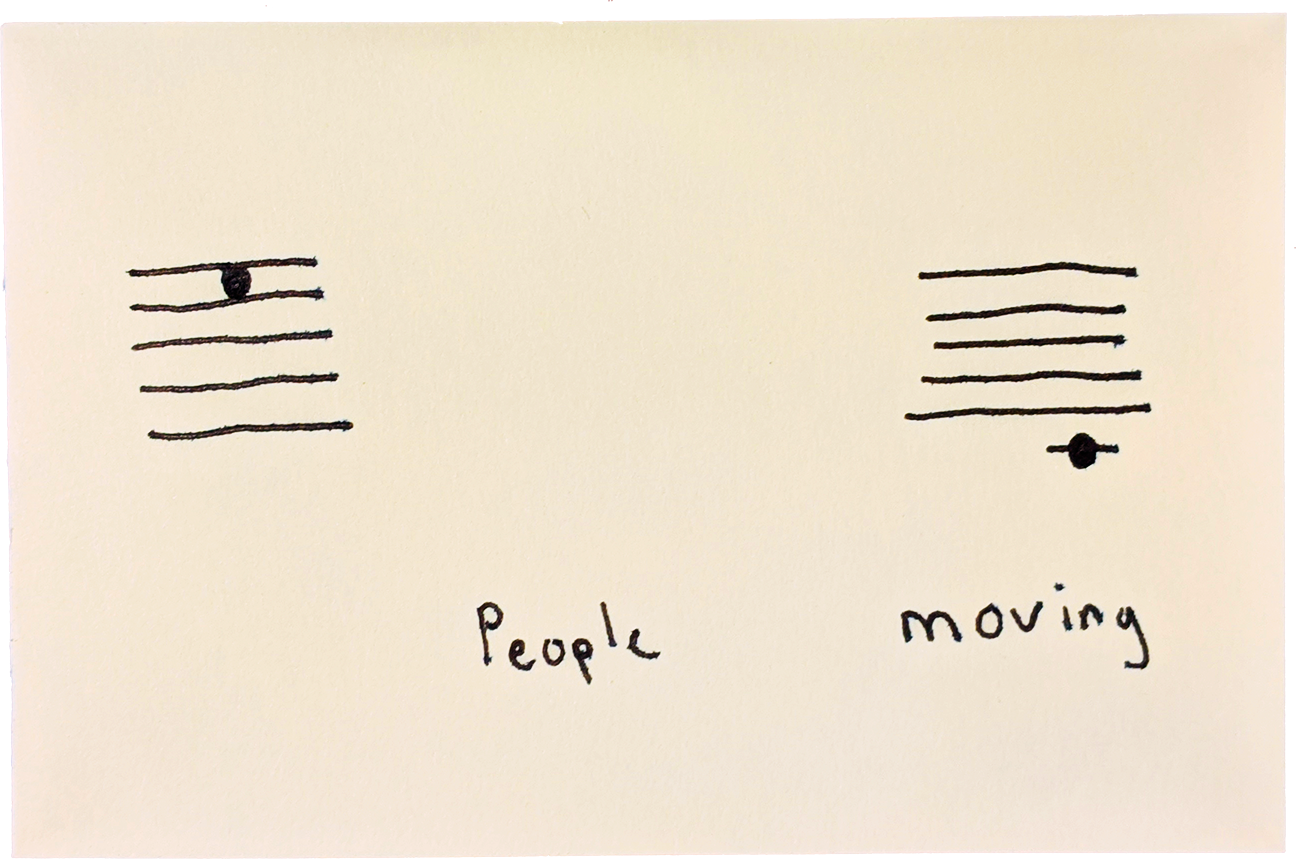 People moving